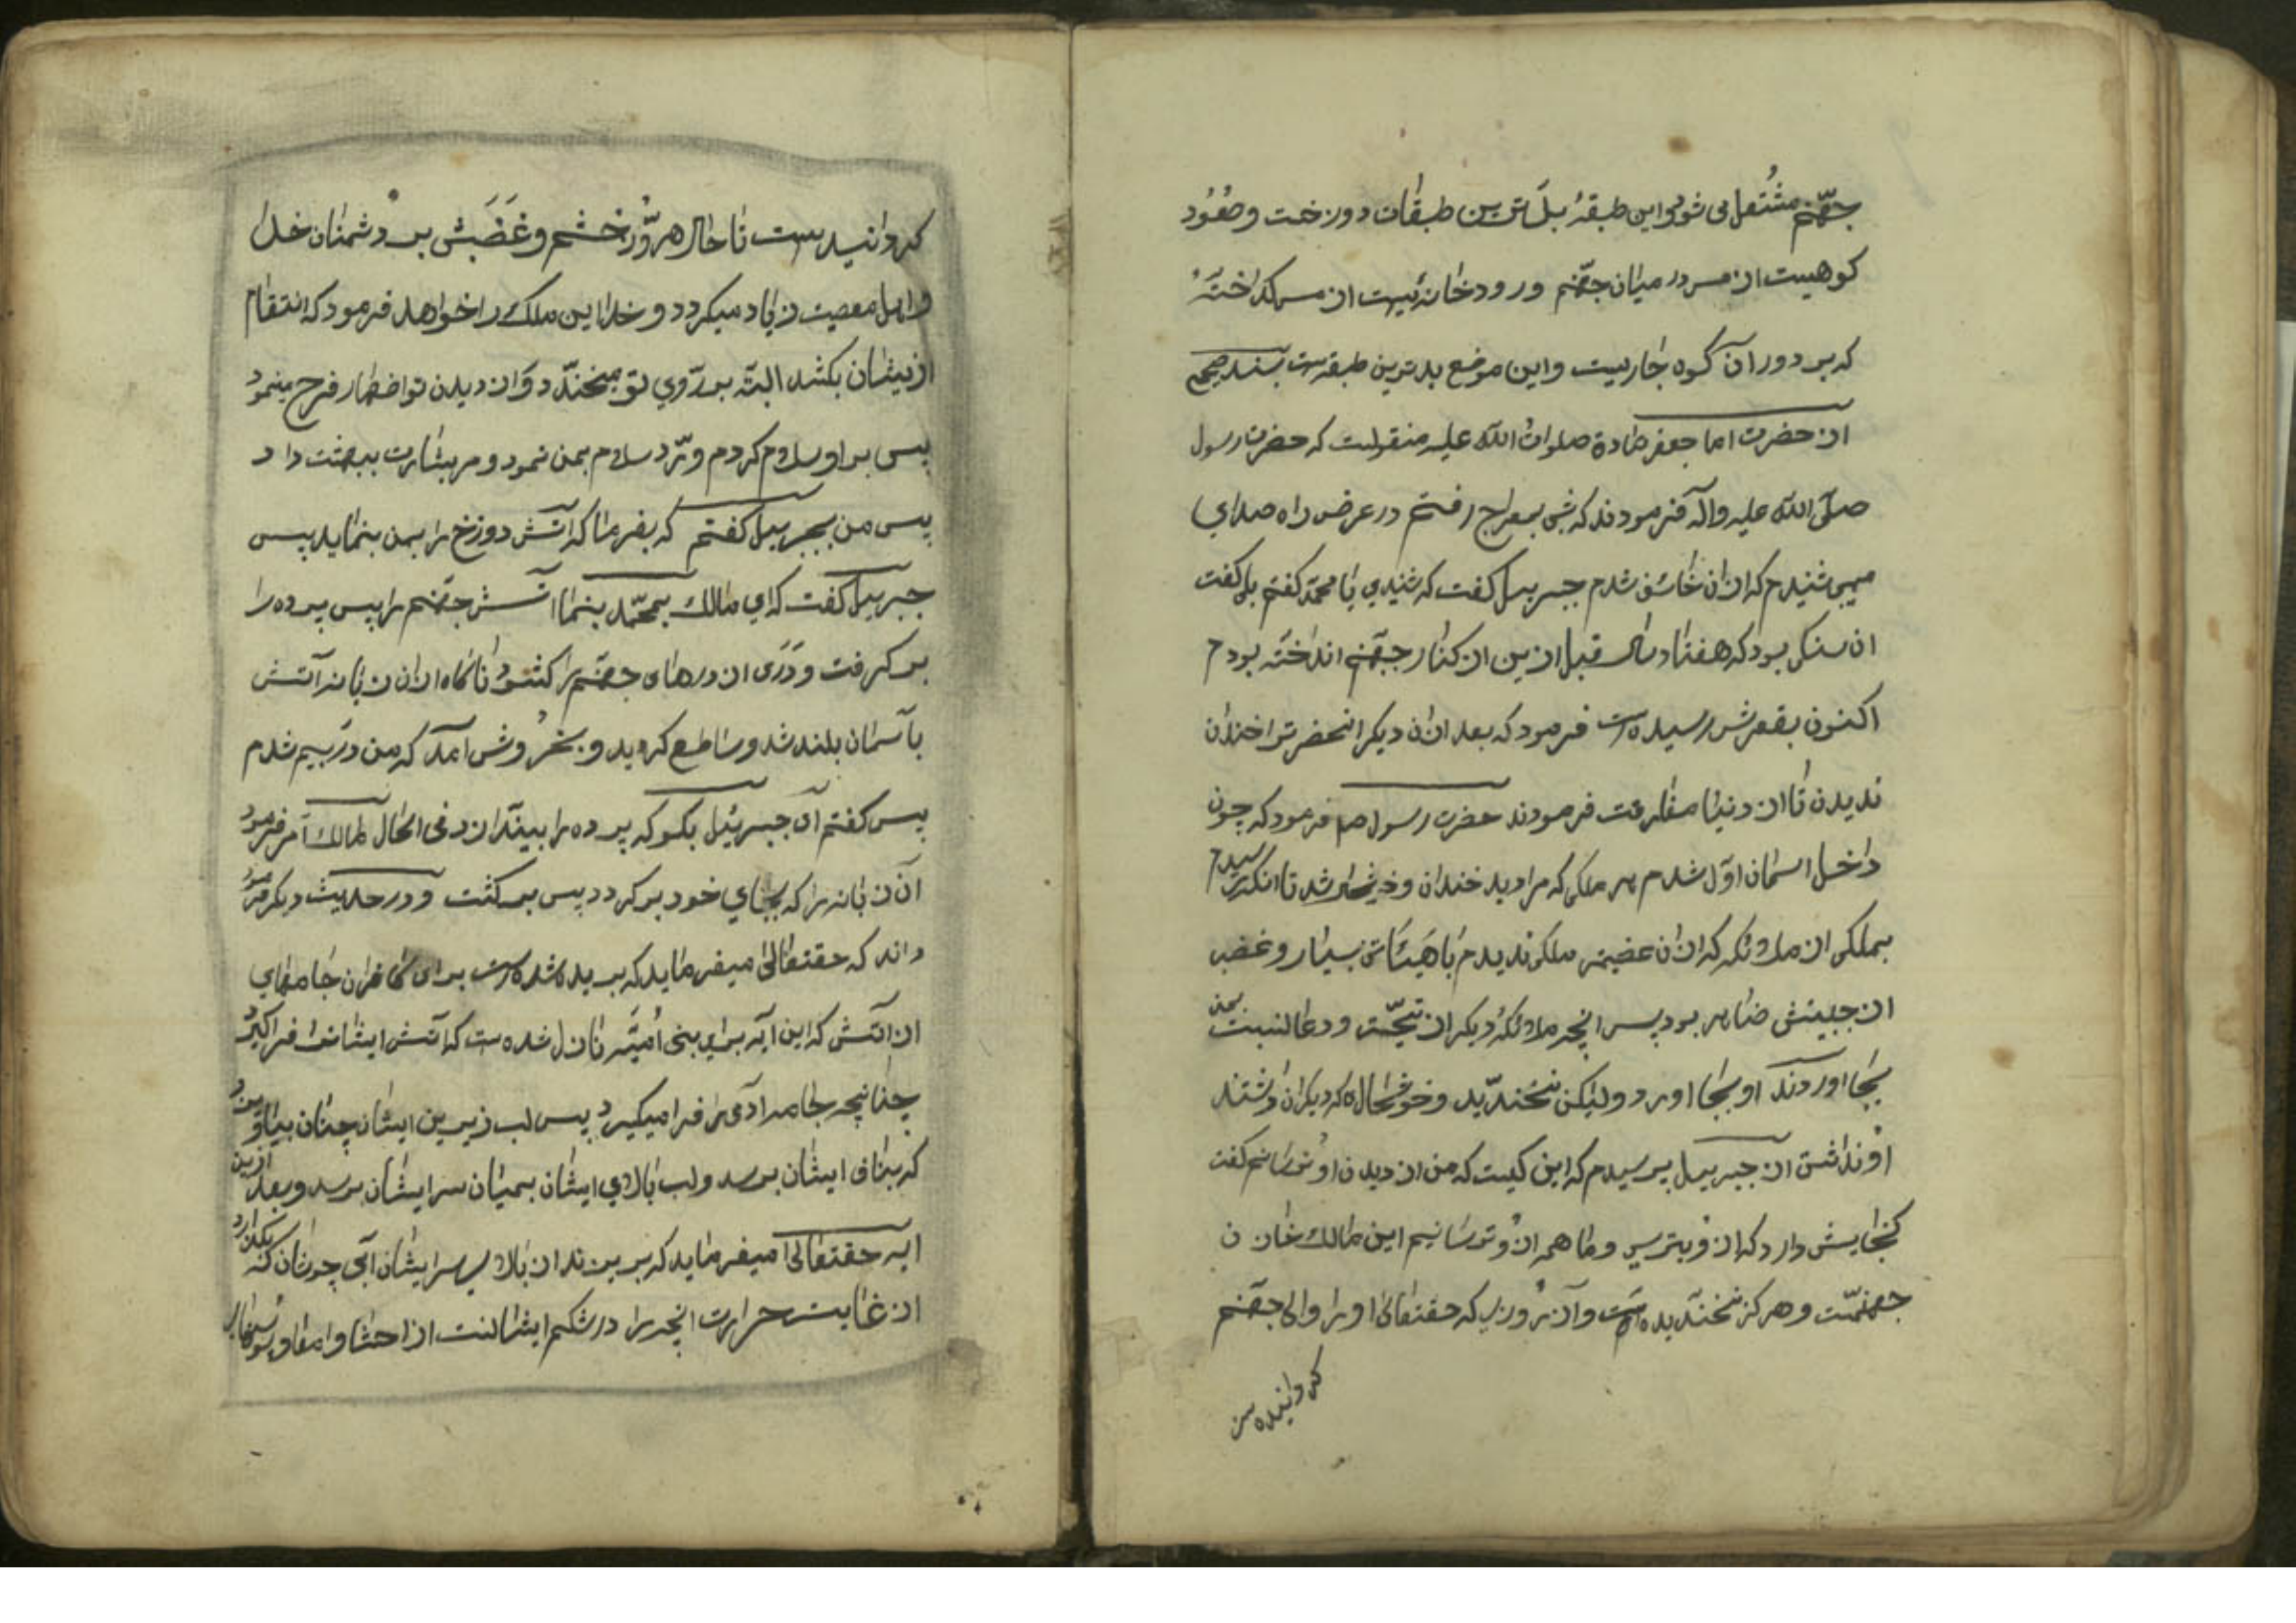 جهنّم مشتعل می شود و این طبقهٔ بدترین طبقات دوزخست و صُعُود
کوهیست از مس در میان جهنّم و رودخانهٔیست از مس کداختهٔ
که بر دور آن کوه جاریست و این موضع بدترین طبقه‌ست بسند صحیح
از حضرت اما جعفر صادق صلوات الله علیه منقولست که حضرت رسول
صلّی الله علیه و آله فرمودند که شبی بمعراج رفتم در عرض راه صدای
میی شنیدم که از آن خائف شدم جبرییل کفت که شنیدی یا محمّد کفتم بلی کفت
ان سنکی بود که هفتاد سال قبل ازین از کنار جهنّم انداخته بودم
اکنون بقعرش رسیده‌ست فرمود که بعد از ان دیکر انحضرترا خندان
ندیدن تا از دنیا مفارقت فرمودند حضرت رسول صم فرمود که چون
داخل اسمان اوّل شدم هر ملکی که مرا دید خندان و خوشحال شد تا انکه رسیدم
بملکی از ملائکه که از ان عضیمتر ملکی ندیدم با هیئاتی بسیار و غضب
از جبینش ضاهر بود پس انچه ملائکهٔ دیکر از تحیّت و دعا نسبت بمن
بجا اوردند او بجا اورد ولیکن نخندید و خوشحال که دیکران داشتند
او نداشت از جبرییل پرسیدم که این کیست که من از دیدن او ترسانم کفت
کنجایش دارد که ازو بترسی و ما همه ازو ترسانیم این مالک خازن
جهنّمست و هرکز نخندیده‌است و آن روزی که حقتعالی او را والی جهنّم
کردانیده‌ست
کردانیدست تا حال هر روز خشم و غَضَبش بر دشمنان خدا
و اهل معصیت زیاد میکردد و خدا این ملک را خواهد فرمود که انتقام
ازیشان بکشد البتّه بر روی تو میخندد و از دیدن تو اضهار فرح مینمود
پس بر او سلام کردم و ردّ سلام بمن نمود و مر بشارت ببهشت داد
پس من بجبرییل کفتم که بفرما که آتش دوزخ را بمن بنماید پس
جبرییل کفت که ای مالک بمحمّد بنما آتش جهنّم را پس پرده را
برکرفت و دَری از درهای جهنّم را کشود ناکاه از ان زبانه آتش
بآسمان بلند شد و ساطع کردید و بخروش آمد که من در بیم شدم
پس کفتم ای جبرئیل بکو که پرده را بیندازد فی الحال مالک امر فرمود
آن زبانه را که بجای خود برکردد پس برکشت و در حدیث دیکر فرمو
داند که حقتعالی میفرماید که بریده شده‌ست برای کافران جامهای
از آتش که این آیه برای بنی اُمیّه نازل شده‌ست که آتش ایشانرا فرا کیرد
چنانچه جامه آدمی را فرا میکیرد پس لب زیرین ایشان چنان بیاویزد
که بناف ایشان برسد و لب بالای ایشان بمیان سر ایشان برسد و بعد ازین
ایه حقتعالی میفرماید که بریزند از بالای سر ایشان آبی جوشان که بکدازد
از غایت حرارت انچه را در شکم ایشانست از احشا و امعا و